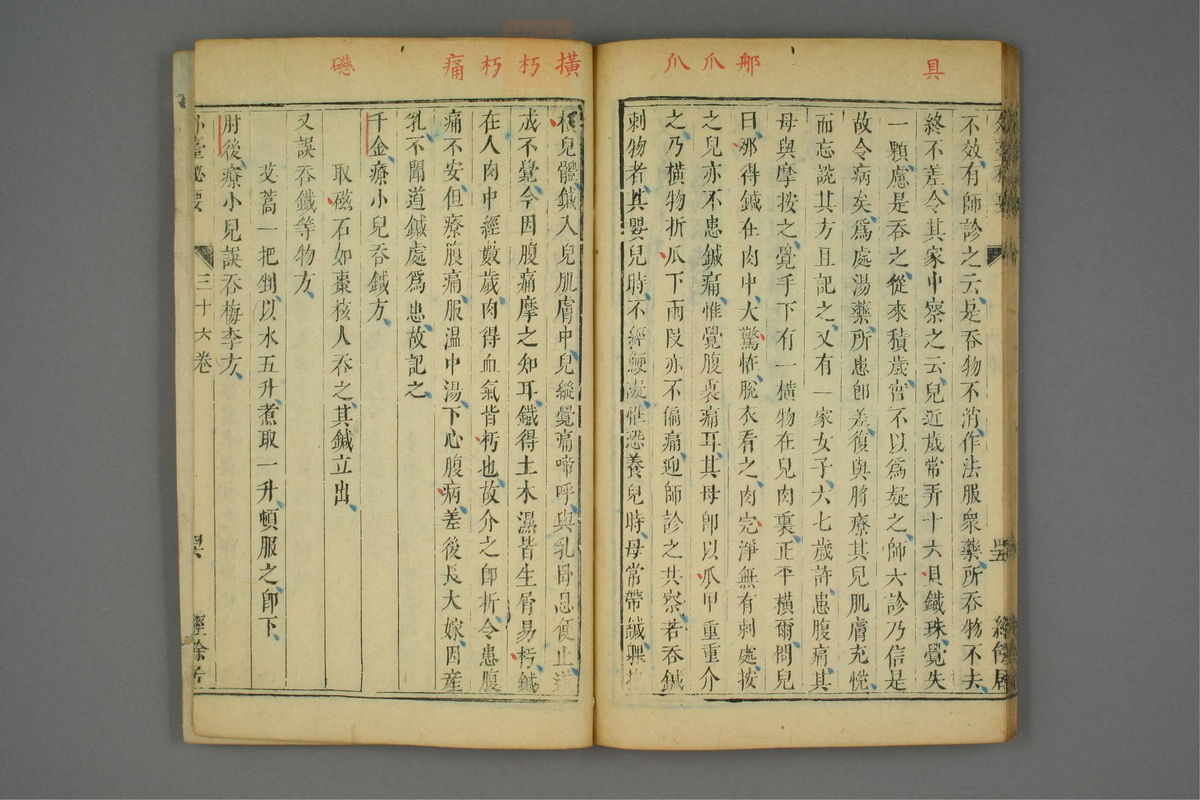 具
那
爪
爪
不效有師診之云是吞物不消作法服衆藥所吞物不去
終不差令其家中察之云兒近歲常弄十六具鐵珠覺失
一顆慮是吞之從來積歲皆不以爲疑之師六診乃信是
故令病矣爲處湯藥所患卽差復與將療其兒肌膚充悅
而忘說其方且記之又有一家女子六七歲許患腹痛其
母與摩按之覺手下有一橫物在兒肉裏正平橫爾問兒
曰那得鍼在肉中大驚怪脫衣看之肉完淨無有刺處按
之兒亦不患鍼痛惟覺腹裏痛耳其母卽以爪甲重重介
之乃橫物折爪下兩段亦不偏痛迎師診之共察若吞鍼
刺物者其嬰兒時不經鯁礙惟恐養兒時母常帶鍼
橫
朽
朽
痛
礠
兒體鍼入兒肌膚中兒縱覺痛啼呼與乳臥息便止遂
成不覺今因腹痛摩之知耳鐵得土木濕皆生脊易朽鍼
在人肉中經數歲肉得血氣皆朽也故介之卽折令患腹
痛不安但療腹痛服溫中湯下心腹病差後長大嫁因產
乳不聞道鍼處爲患故記之
千金療小兒吞鍼方
取磁石如棗核人吞之其鍼立出
又誤吞鐵等物方
艾蒿一把剉以水五升煮取一升頓服之卽下
肘後療小兒誤吞梅李方
外臺秘要
三十六卷
經餘居